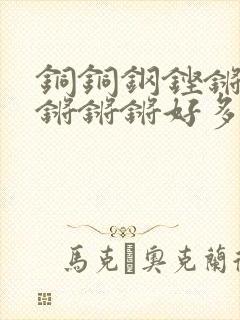 銅銅鋼鏗鏘
鏘鏘鏘好多
馬克 奧克蘭